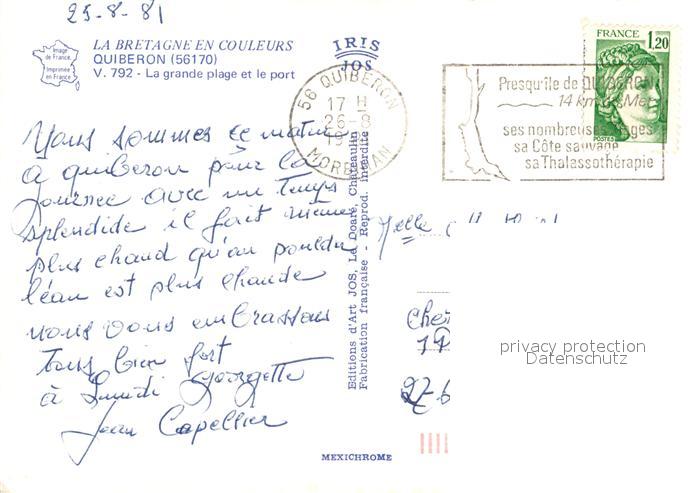 25-8-81
Image
de France
Imprimée
en France
LA BRETAGNE EN COULEURS
QUIBERON (56170)
V. 792 - La grande plage et le port
IRIS
JOS
56 QUIBERON
17 H
26-8
19
MORBIHAN
FRANCE
1,20
POSTES
Presqu'île de QUIBERON
14 km Mer
ses nombreuses plages
sa Côte sauvage
sa Thalassothérapie
Nous sommes ce matin
à quiberon pour la
journée avec un temps
splendide il fait même
plus chaud qu'au pouldu
l'eau est plus chaude
nous vous embrassons
tous bien fort
à Lundi Georgette
Jean Capellier
Editions d'Art JOS, Le Doaré, Chateaulin
Fabrication française - Reprod. interdite
Melle
Cher
27-6
privacy protection
Datenschutz
MEXICHROME